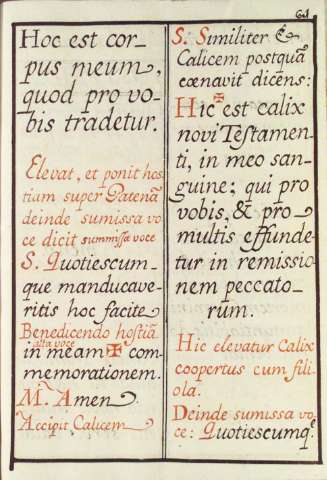 61
Hoc est cor_
pus meum,
quod pro vo_
bis tradetur.
Elevat, et ponit hos
tiam super Patenã
deinde sumissa vo
ce dicit summissa voce
S. Quotiescum_
que manducave_
ritis hoc facite
Benedicendo hostiã
alta voce
in meam ✠ com_
memorationem.
M. Amen
Accipit Calicem
S. Similiter &
Calicem postquã
cœnavit dicens:
Hic ✠ est calix
novi Testamen_
ti, in meo san_
guine; qui pro
vobis, & pro_
multis effunde_
tur in remissio_
nem peccato_
rum.
Hic elevatur Calix
coopertus cum fili_
ola.
Deinde sumissa vo_
ce: Quotiescumq̃.